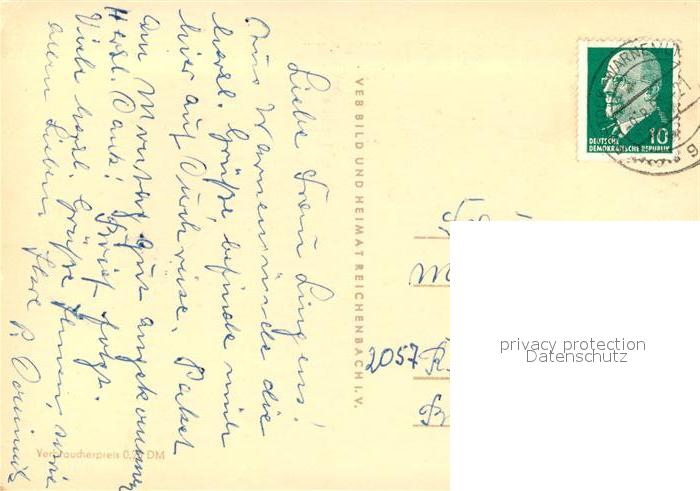 Liebe Frau Lingens!
Aus Warnemünde die
herzl. Grüße, befinde mich
hier auf Durchreise. Paket
am Montag gut angekommen
Herzl. Dank! Brief folgt.
Viele herzl. Grüße Ihnen, sowie
allen Lieben, Ihre P.
VEB BILD UND HEIMAT REICHENBACH I. V.
WARNEMÜN
DEUTSCHE
DEMOKRATISCHE REPUBLIK
10
2057
privacy protection
Datenschutz
Verbraucherpreis DM